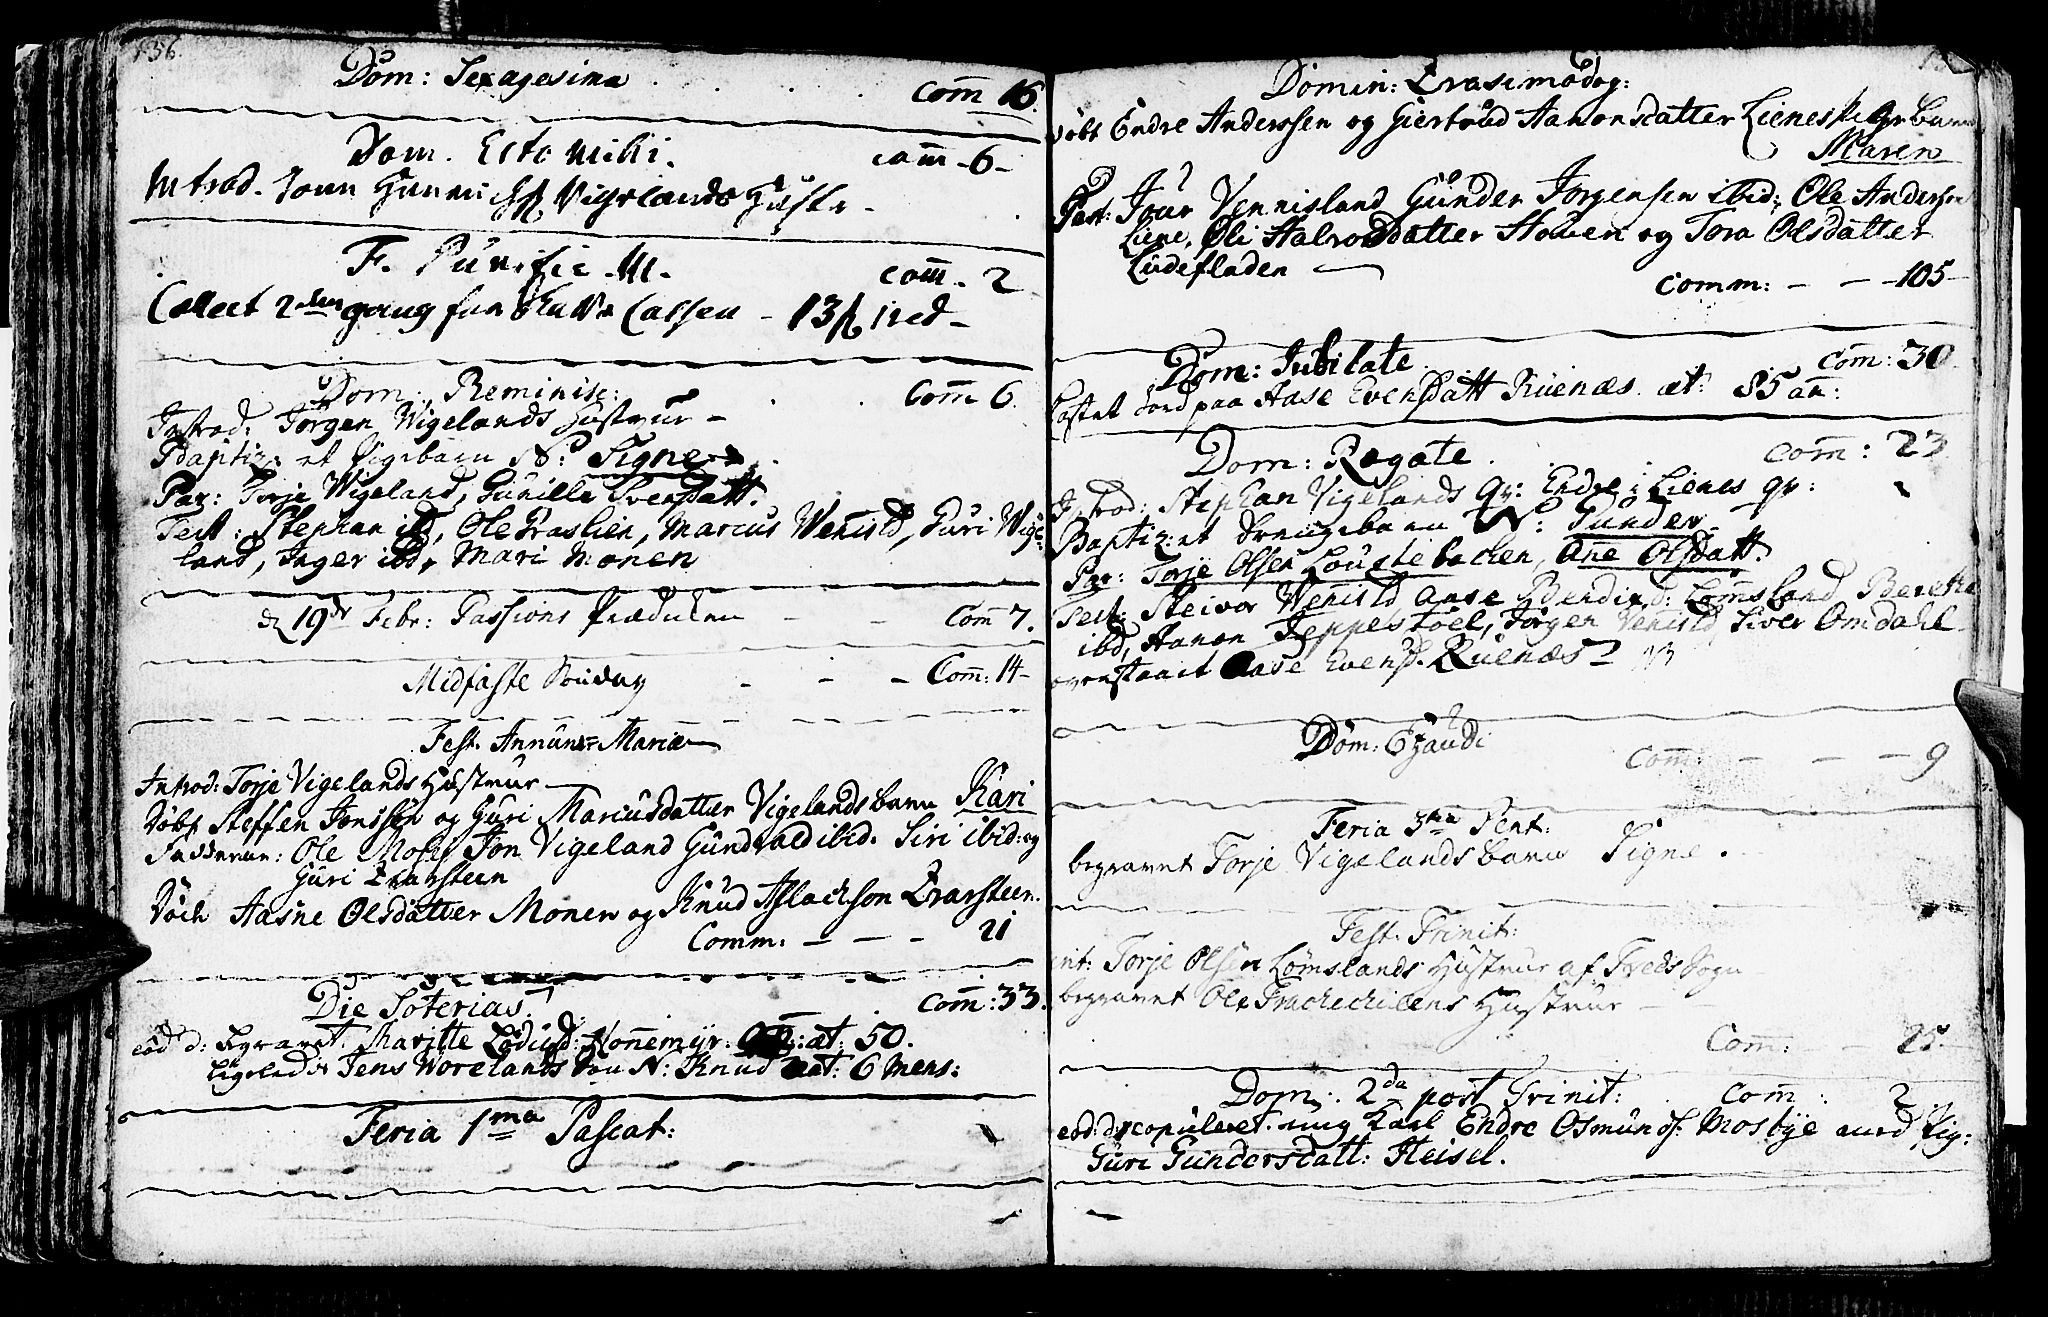 136.
Dom: Sexagesima . . . . Com̄ 16.
Dom. Esto mihi. com̄ - 6 -
Introd. Joen Vigelands Hustr -
F. Purific. M. com̄. 2
Collect 2den gang for Cassen - 13 ß ined -
Dom: Reminisc: . . Com̄ 6.
Introd: Jörgen Wigelands Hustrue -
Baptiz: et Pigebarn N: Signe
Par: Torje Wigeland, Gunille Svensdatt.
Test: Stephan ibd, Ole Braslien, Marcus Wenisld, Guri Wige-
land, Inger ibd, Mari Monen
d 19de Febr: Passions Prædiken - - Com̄ 7.
Midfaste Sondag - - - Com̄: 14 -
Fest. Annunc Mariæ
Introd: Torje Vigelands Hustrue
Döbt Steffen Jonssen og Guri Marcusdatter Vigelands barn Kari
Fadderne: Ole Moseß Jon Vigeland Gundvald ibid. Siri ibid: og
Guri Drarsteen
Aasne Olsdatter Monen og Knud Aslachson Drarsteen.
Comm: - - - 21
Die Soterias . com̄: 33.
eod d: Begravet. Maritte Honnemyr. æt: 50.
Ligeledes Jens Worelands Sön N: Knud æt: 6 mens:
Feria 1ma Pascat:
Domin: Qvasimodog:
Döbt Endre Anderssen og Giertrud Aanonsdatter Lienes Pigebarn
Maren
Fad: Jour Vennisland Gunder Jörgensen ibid, Ole Andersen
Liene, Oli Halvorsdatter Hoven og Tora Olsdatter
Ludefladen
Comm: - - - 105 -
Dom: Jubilate com̄: 30
Kastet Jord paa Aase Evensdatt Ruenæs. æt: 85 an:
Dom: Rogate . com̄: 23
Introd: Stephan Vigelands qv: Endre Lienes qv:
Baptiz: et Drengebarn N: Gunder
Par: Torje Olsen Loustebachen, Ane Olsdatt.
Test: Steivor Wenisld Aase Lomsland
ibd, Aanon Jeppestöel, Jörgen Wenisld Siver Omdahl
Aase Evensd. Ruenæs
Dom: Exaudi
Com̄: - - - 9
Feria 3tia Pent:
begravet Torje Vigelands barn Signe.
Fest. Trinit:
int: Torje Olsen Lömslands Hustrue af Treds Sogn
begravet Ole Hustrue -
Com̄: - 25.
Dom: 2da post Trinit: . com̄ : 2
eod: d: copuleret ung Karl Endre Osmundß. Mosbye med Pig:
Guri Gundersdatt: Heisel.